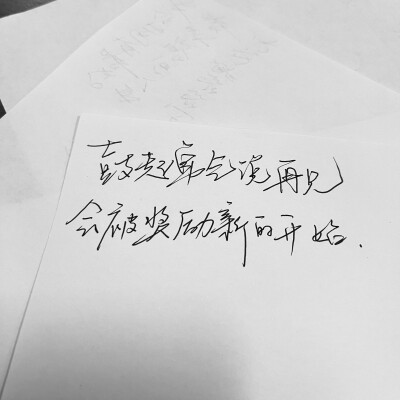 鼓起勇气说再见
会被奖励新的开始.